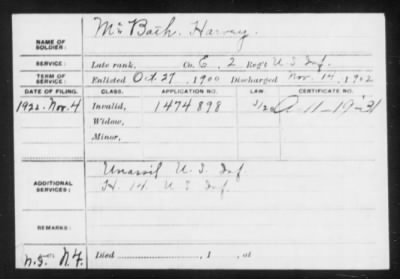 NAME OF SOLDIER: Mc Bath, Harvey.
SERVICE: Late rank, Co. E, 2 Reg't U.S. Inf.
TERM OF SERVICE: Enlisted Oct. 27, 1900 Discharged Nov. 14, 1902
DATE OF FILING. CLASS. APPLICATION NO. LAW. CERTIFICATE NO.
1922. Nov. 4 Invalid, 1474898 A-11-19-21
Widow,
Minor,
ADDITIONAL SERVICES: Unassif U.S. Inf.
H. 14 U S Inf.
REMARKS:
Died , 1 , at